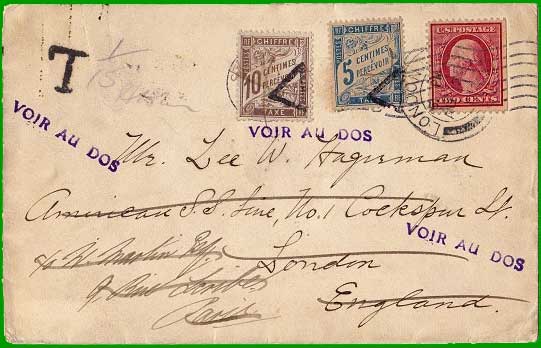 T
CHIFFRE
10 CENTIMES
A PERCEVOIR
TAXE
CHIFFRE
5 CENTIMES
A PERCEVOIR
TAXE
TWO CENTS
LONDON
VOIR AU DOS
VOIR AU DOS
Mr. Lee W. Hagerman
American S.S. Line, No. 1 Cockspur St.
VOIR AU DOS
London
England.
c/o W. Martin
9 Rue
Paris